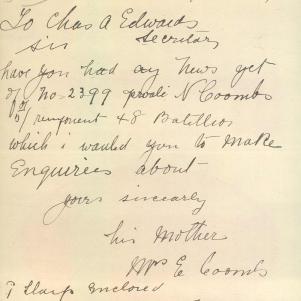 To Chas A Edwards
sir Secretary
have you had any News yet
of No-2399 private N Coombs
5th reingment 48 Batillion
which i wanted you to make
Enquirees about
yours sincearly
his Mother
Mrs E Coombs
Enclosed